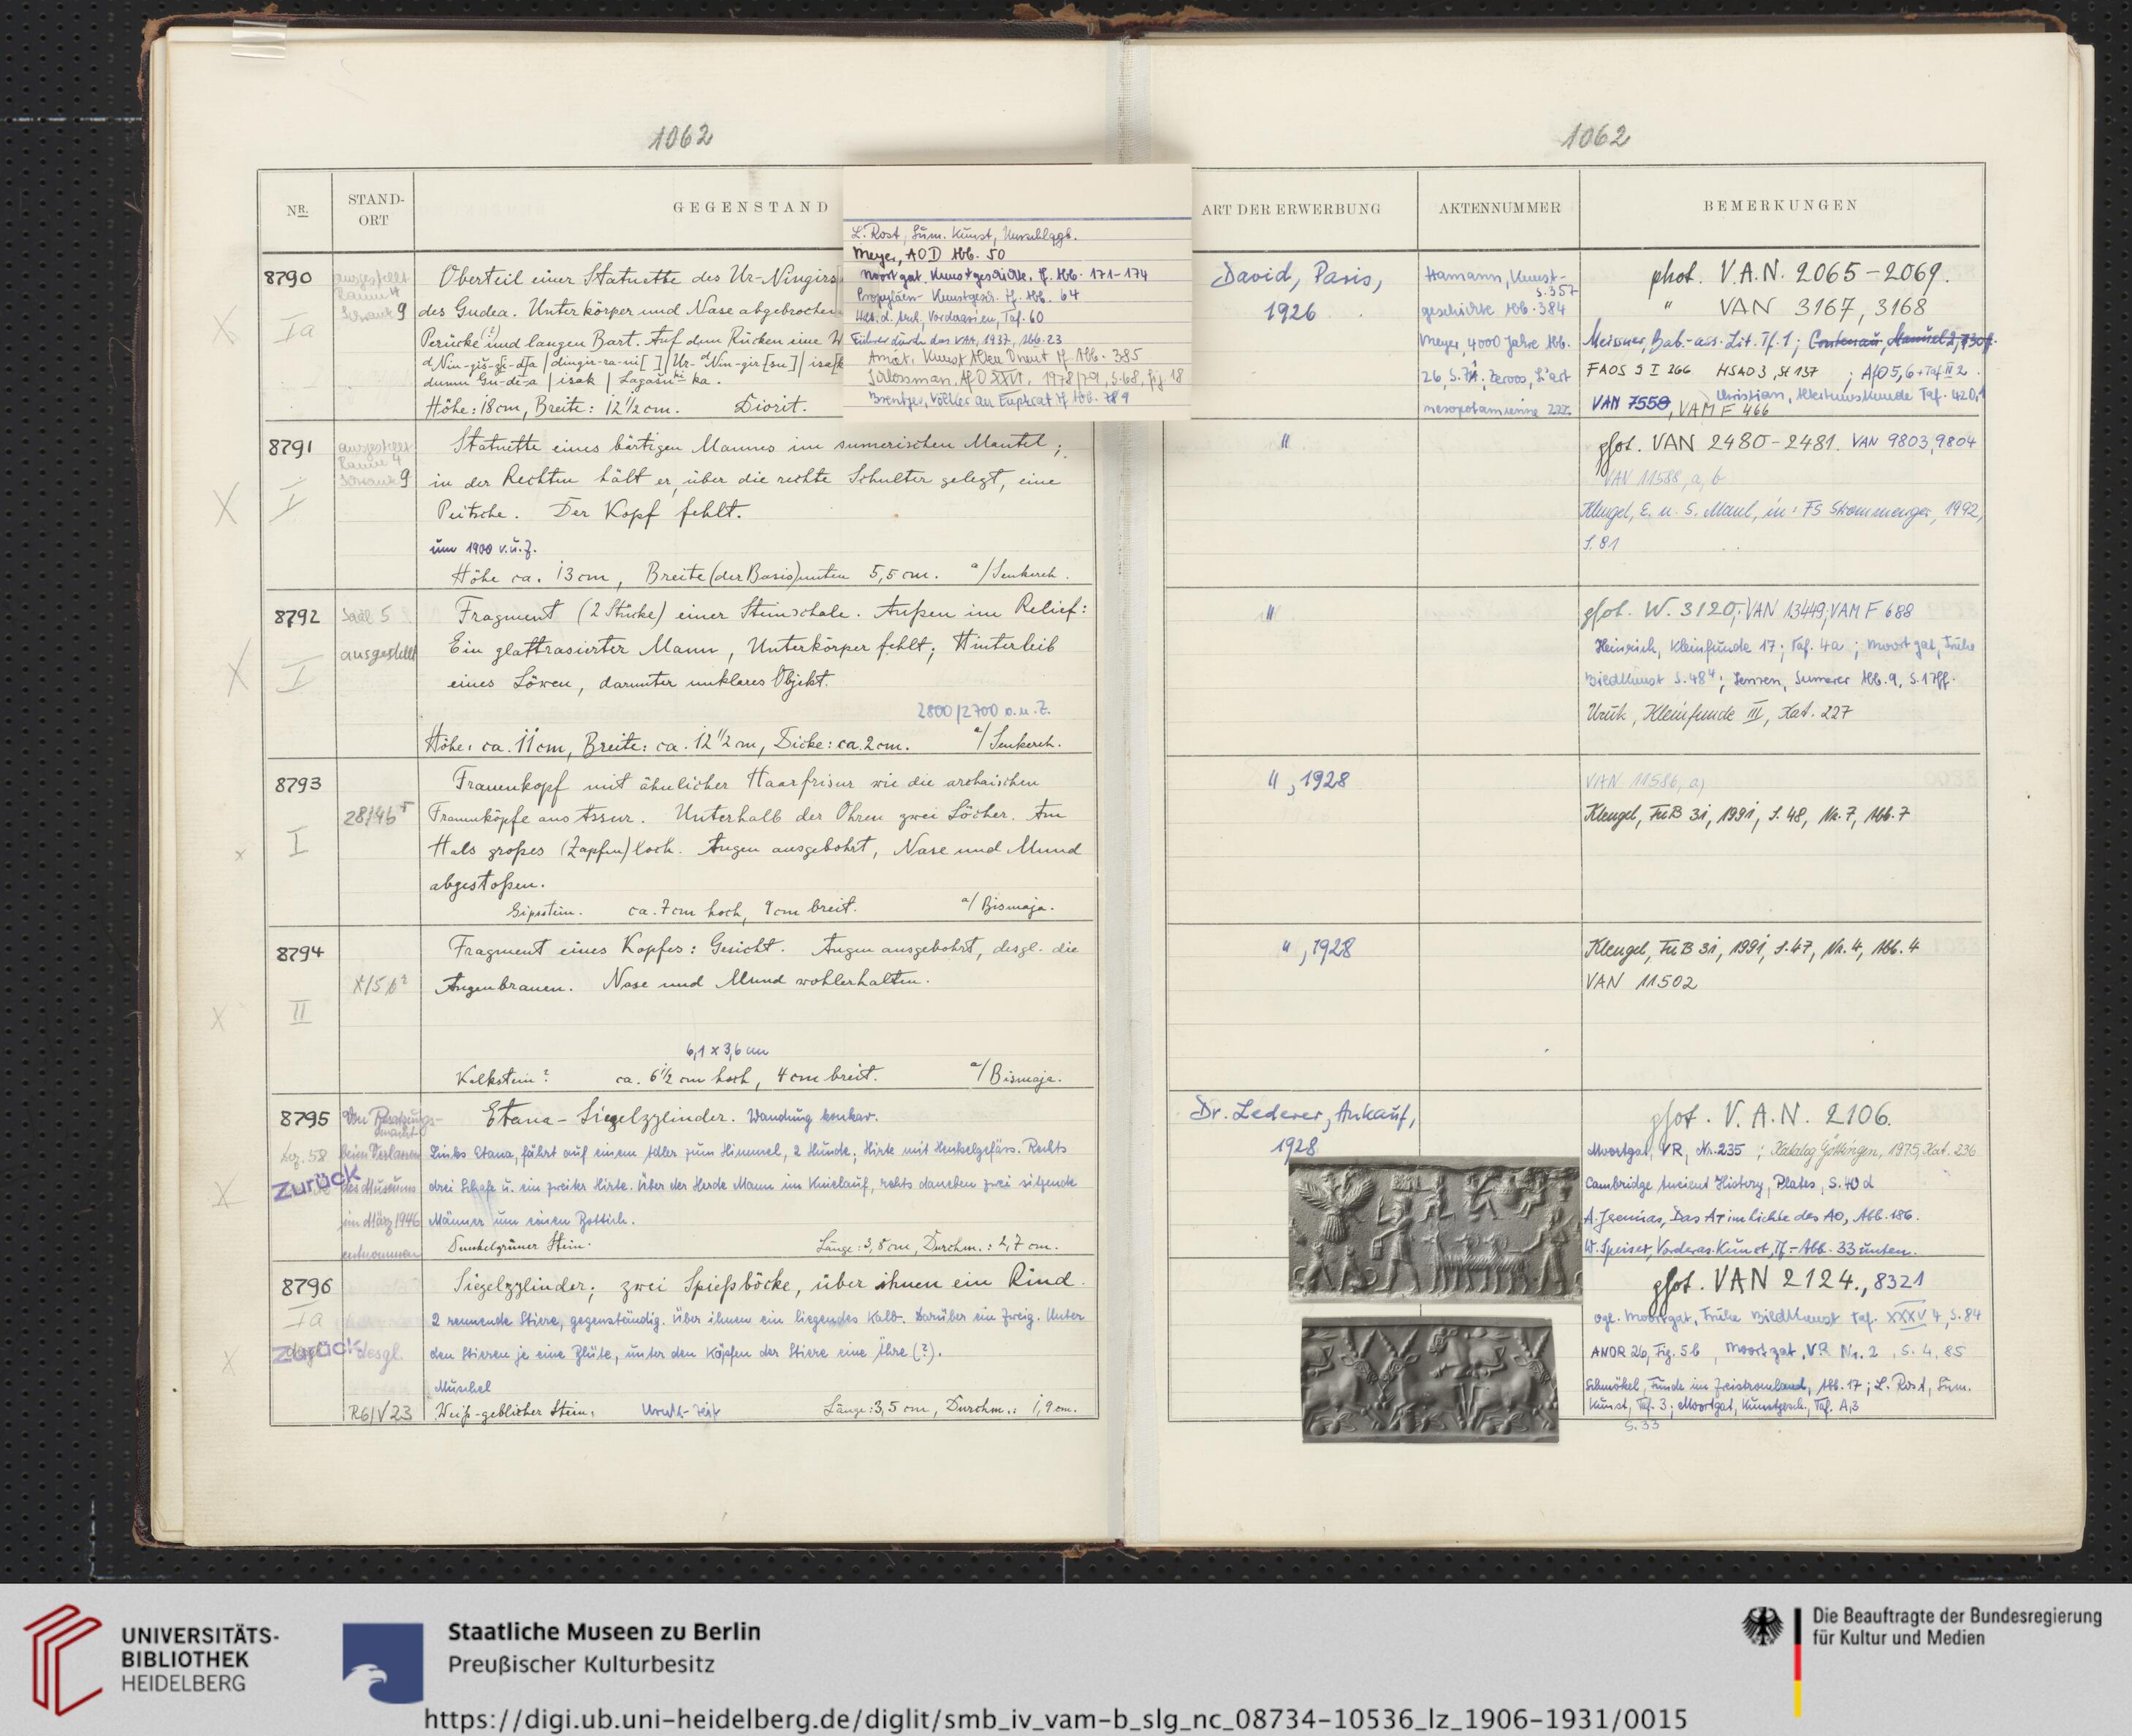 1062
1062
NR.
STAND-
ORT
GEGENSTAND
ART DER ERWERBUNG
AKTENNUMMER
BEMERKUNGEN
L. Rost, Sum. Kunst, Umschlagb.
Meyer, AOD Abb. 50
Moortgat, Kunstgeschichte, Tf. Abb. 171-174
Propyläen-Kunstgesch. Tf. Abb. 64
Hdb. d. Arch., Vorderasien, Taf. 60
Führer durch das VAM, 1937, Abb. 23
Amiet, Kunst Alten Orient Tf Abb. 385
Schlossman, AfO XXVI, 1978/79, S.68, Fig 18
Brentjes, Völker an Euphrat Tf Abb.
8790
ausgestellt
Raum 4
Schrank 9
Ia
Oberteil einer Statuette des Ur-Ningirs
des Gudea. Unterkörper und Nase abgebrochen
Perücke (?) und langen Bart. Auf dem Rücken eine
dumu Gu-de-a | isak | Lagašu ki-ka.
Höhe: 18 cm, Breite: 12 1/2 cm. Diorit.
David, Paris,
1926
Hamann, Kunst-
S. 357
geschichte Abb. 384
Meyer, 4000 Jahre Abb.
26, S. Zervos, L'art
mesopotamienne 222.
phot. V.A.N. 2065-2069.
" VAN 3167, 3168
Meissner, Bab.-ass. Lit. Tf. 1; Contenau, Manuel 2,
FAOS 9 I 266 HSAO 3, St 137 ; AfO 5, 6 + Taf II 2.
Christian, Altertumskunde Taf. 420,1
VAN 7550, VAM F 466
8791
ausgestellt
Raum 4
Schrank 9
I
Statuette eines bärtigen Mannes im sumerischen Mantel;
in der Rechten hält er, über die rechte Schulter gelegt, eine
Peitsche. Der Kopf fehlt.
um 1900 v.u.Z.
Höhe ca. 13 cm, Breite (der Basis) unten 5,5 cm. a/Senkereh.
"
phot. VAN 2480-2481. VAN 9803, 9804
VAN 11588, a, b
Klengel, E. u. S. Maul, in: FS Strommenger, 1992,
S. 81
8792
Saal 5
ausgestellt
I
Fragment (2 Stücke) einer Steinschale. Außen im Relief:
Ein glattrasierter Mann, Unterkörper fehlt; Hinterleib
eines Löwen, darunter unklares Objekt.
2800/2700 v.u.Z.
Höhe: ca. 11 cm, Breite: ca. 12 1/2 cm, Dicke: ca. 2 cm. a/Senkereh.
"
phot. W. 3120; VAN 13449; VAM F 688
Heinrich, Kleinfunde 17; Taf. 4a; Moortgat, Frühe
Bildkunst S. 48 4; Jensen, Sumerer Abb. 9, S. 17ff.
Uruk, Kleinfunde III, Kat. 227
8793
28146 5
I
Frauenkopf mit ähnlicher Haarfrisur wie die archaischen
Frauenköpfe aus Assur. Unterhalb der Ohren zwei Löcher. Am
Hals großes (Zapfen)loch. Augen ausgebohrt, Nase und Mund
abgestoßen.
Gipsstein. ca. 7 cm hoch, 9 cm breit. a/Bismaja.
", 1928
VAN 11586, a)
Klengel, FuB 31, 1991, S. 48, Nr. 7, Abb. 7
8794
II
Fragment eines Kopfes: Gesicht. Augen ausgebohrt, desgl. die
Augenbrauen. Nase und Mund wohlerhalten.
6,1 x 3,6 cm
Kalkstein? ca. 6 1/2 cm hoch, 4 cm breit. a/Bismaja.
", 1928
Klengel, FuB 31, 1991, S. 47, Nr. 4, Abb. 4
VAN 11502
8795
Von Besatzungs-
macht
beim Verlassen
des Museums
im März 1946
entnommen
58
Zurück
Etana-Siegelzylinder. Wandung konkav.
Links Etana, fährt auf einem Adler zum Himmel, 2 Hunde; Hirte mit Henkelgefäss. Rechts
drei Schafe u. ein zweiter Hirte. Über der Herde Mann im Knielauf, rechts daneben zwei sitzende
Männer um einen Bottich.
Dunkelgrüner Stein. Länge: 3,8 cm, Durchm.: 2,7 cm.
Dr. Lederer, Ankauf,
1928
phot. V.A.N. 2106.
Moortgat, VR, Nr. 235 ; Katalog Göttingen, 1975, Kat. 236
Cambridge Ancient History, Plates, S. 40 d
A. Jeremias, Das AT im Lichte des AO, Abb. 186.
W. Speiser, Vorderas. Kunst, Tf.-Abb. 33 unten.
8796
Ia
Zurück
desgl.
R6/V23
Siegelzylinder; zwei Spießböcke, über ihnen ein Rind.
2 rennende Stiere, gegenständig. Über ihnen ein liegendes Kalb. Darüber ein Zweig. Unter
den Stieren je eine Blüte, unter den Köpfen der Stiere eine Ähre (?).
Muschel
Weiß-gelblicher Stein. Uruk-Zeit Länge: 3,5 cm, Durchm.: 1,9 cm.
phot. VAN 2124., 8321
vgl. Moortgat, Frühe Bildkunst Taf. XXXV 4, S. 84
ANOR 26, Fig. 5b, Moortgat, VR Nr. 2, S. 4, 85
Schmökel, Funde im Zweistromland, Abb. 17; L. Rost, Sum.
Kunst, Taf. 3; Moortgat, Kunstgesch., Taf. A,3
S. 33
UNIVERSITÄTS-
BIBLIOTHEK
HEIDELBERG
Staatliche Museen zu Berlin
Preußischer Kulturbesitz
Die Beauftragte der Bundesregierung
für Kultur und Medien
https://digi.ub.uni-heidelberg.de/diglit/smb_iv_vam-b_slg_nc_08734-10536_lz_1906-1931/0015